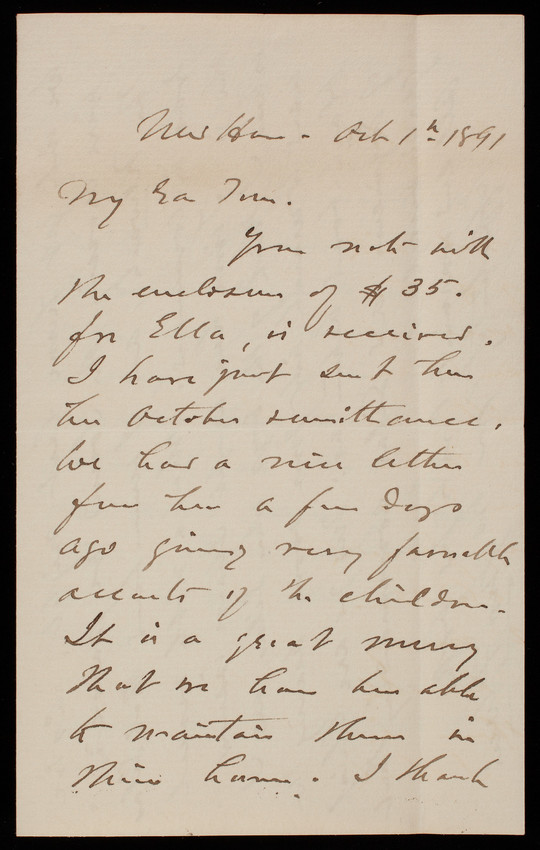 New Haven - Oct 1st 1891
My Dear Tom.
Your note with
the enclosure of $35.
for Ella, is received.
I have just sent her
her October remittance.
We had a nice letter
from her a few days
ago giving very favorable
accounts of the children.
It is a great mercy
that we have been able
to maintain them in
their home. I thank